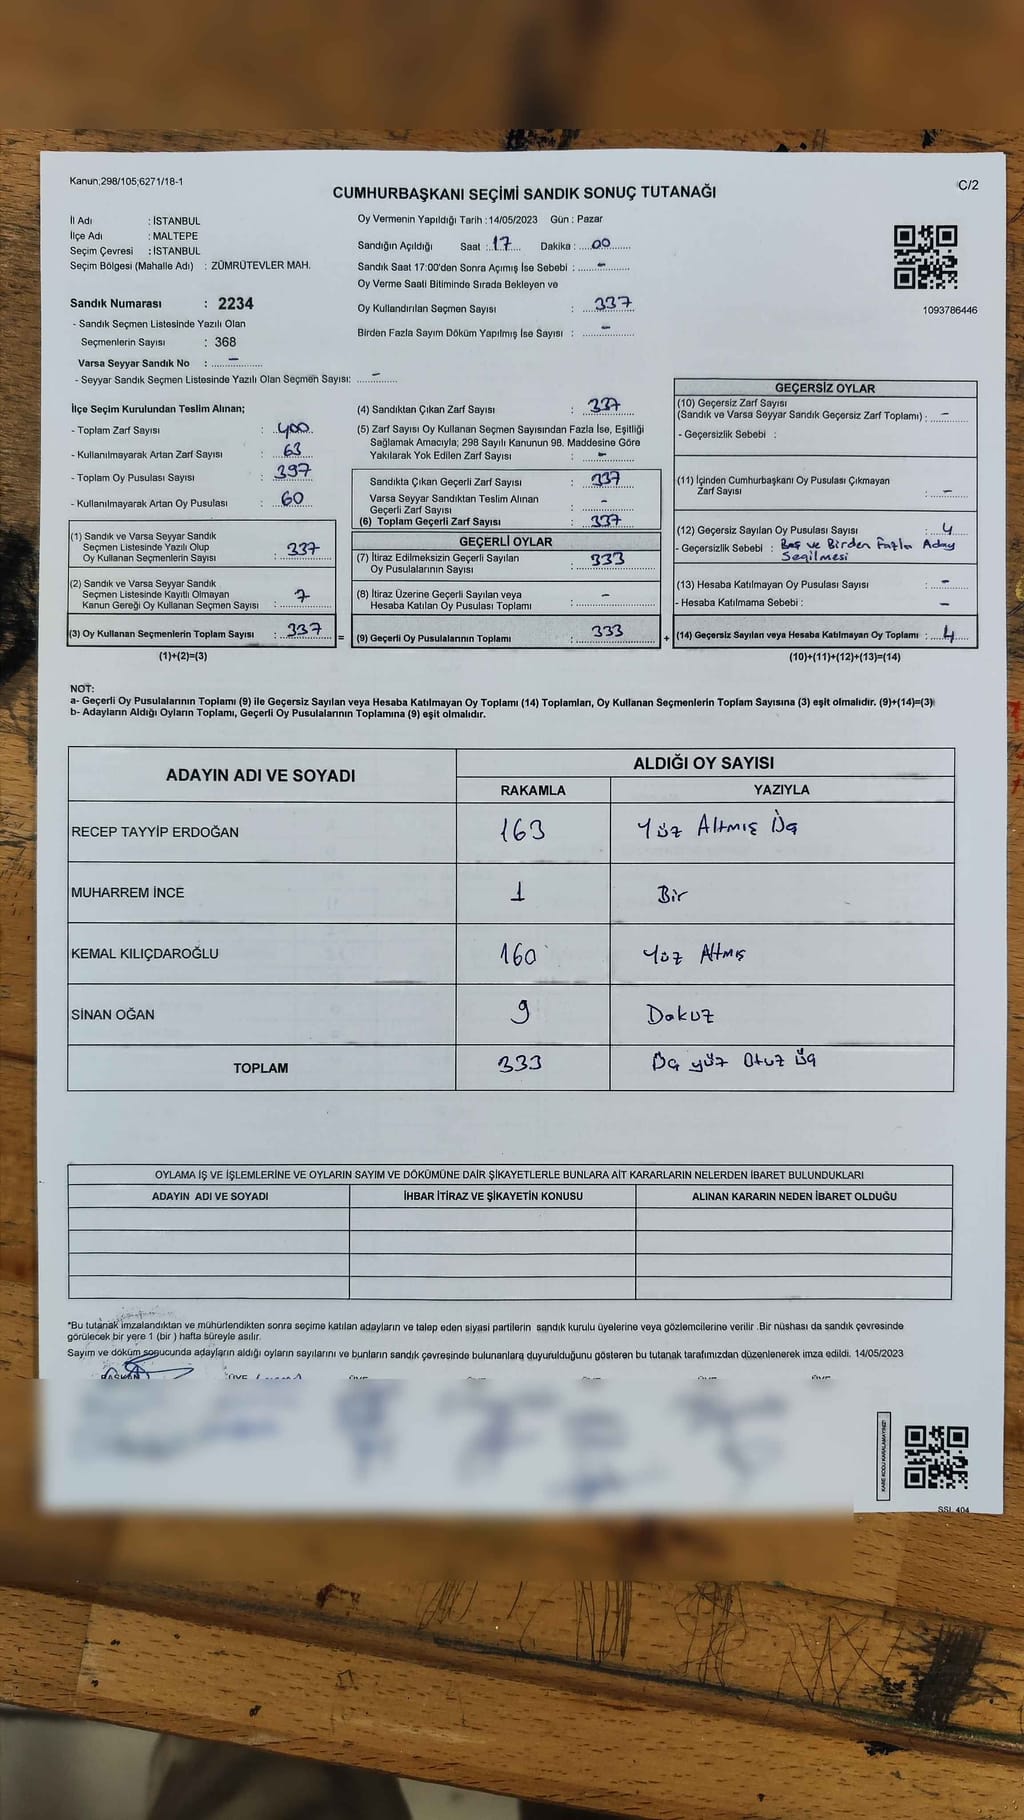 Kanun,298/105;6271/18-1
CUMHURBAŞKANI SEÇİMİ SANDIK SONUÇ TUTANAĞI
C/2
İl Adı : İSTANBUL
İlçe Adı : MALTEPE
Seçim Çevresi : İSTANBUL
Seçim Bölgesi (Mahalle Adı) : ZÜMRÜTEVLER MAH.
Sandık Numarası : 2234
- Sandık Seçmen Listesinde Yazılı Olan
Seçmenlerin Sayısı : 368
Varsa Seyyar Sandık No : –
- Seyyar Sandık Seçmen Listesinde Yazılı Olan Seçmen Sayısı: –
Oy Vermenin Yapıldığı Tarih : 14/05/2023 Gün : Pazar
Sandığın Açıldığı Saat : 17 Dakika : 00
Sandık Saat 17:00'den Sonra Açımış İse Sebebi : –
Oy Verme Saati Bitiminde Sırada Bekleyen ve
Oy Kullandırılan Seçmen Sayısı : 337
Birden Fazla Sayım Döküm Yapılmış İse Sayısı : –
1093786446
İlçe Seçim Kurulundan Teslim Alınan;
- Toplam Zarf Sayısı : 400
- Kullanılmayarak Artan Zarf Sayısı : 63
- Toplam Oy Pusulası Sayısı : 397
- Kullanılmayarak Artan Oy Pusulası : 60
(1) Sandık ve Varsa Seyyar Sandık
Seçmen Listesinde Yazılı Olup
Oy Kullanan Seçmenlerin Sayısı : 337
(2) Sandık ve Varsa Seyyar Sandık
Seçmen Listesinde Kayıtlı Olmayan
Kanun Gereği Oy Kullanan Seçmen Sayısı : 7
(3) Oy Kullanan Seçmenlerin Toplam Sayısı : 337 =
(1)+(2)=(3)
(4) Sandıktan Çıkan Zarf Sayısı : 337
(5) Zarf Sayısı Oy Kullanan Seçmen Sayısından Fazla İse, Eşitliği
Sağlamak Amacıyla; 298 Sayılı Kanunun 98. Maddesine Göre
Yakılarak Yok Edilen Zarf Sayısı : –
Sandıkta Çıkan Geçerli Zarf Sayısı : 337
Varsa Seyyar Sandıktan Teslim Alınan
Geçerli Zarf Sayısı : –
(6) Toplam Geçerli Zarf Sayısı : 337
GEÇERLİ OYLAR
(7) İtiraz Edilmeksizin Geçerli Sayılan
Oy Pusulalarının Sayısı : 333
(8) İtiraz Üzerine Geçerli Sayılan veya
Hesaba Katılan Oy Pusulası Toplamı : –
(9) Geçerli Oy Pusulalarının Toplamı : 333 +
GEÇERSİZ OYLAR
(10) Geçersiz Zarf Sayısı
(Sandık ve Varsa Seyyar Sandık Geçersiz Zarf Toplamı) : –
- Geçersizlik Sebebi :
(11) İçinden Cumhurbaşkanı Oy Pusulası Çıkmayan
Zarf Sayısı : –
(12) Geçersiz Sayılan Oy Pusulası Sayısı : 4
- Geçersizlik Sebebi : Boş ve Birden Fazla Aday
Seçilmesi
(13) Hesaba Katılmayan Oy Pusulası Sayısı : –
- Hesaba Katılmama Sebebi : –
(14) Geçersiz Sayılan veya Hesaba Katılmayan Oy Toplamı : 4
(10)+(11)+(12)+(13)=(14)
NOT:
a- Geçerli Oy Pusulalarının Toplamı (9) ile Geçersiz Sayılan veya Hesaba Katılmayan Oy Toplamı (14) Toplamları, Oy Kullanan Seçmenlerin Toplam Sayısına (3) eşit olmalıdır. (9)+(14)=(3)
b- Adayların Aldığı Oyların Toplamı, Geçerli Oy Pusulalarının Toplamına (9) eşit olmalıdır.
ADAYIN ADI VE SOYADI ALDIĞI OY SAYISI
RAKAMLA YAZIYLA
RECEP TAYYİP ERDOĞAN 163 Yüz Altmış Üç
MUHARREM İNCE 1 Bir
KEMAL KILIÇDAROĞLU 160 Yüz Altmış
SİNAN OĞAN 9 Dokuz
TOPLAM 333 Üç yüz Otuz Üç
OYLAMA İŞ VE İŞLEMLERİNE VE OYLARIN SAYIM VE DÖKÜMÜNE DAİR ŞİKAYETLERLE BUNLARA AİT KARARLARIN NELERDEN İBARET BULUNDUKLARI
ADAYIN ADI VE SOYADI İHBAR İTİRAZ VE ŞİKAYETİN KONUSU ALINAN KARARIN NEDEN İBARET OLDUĞU
*Bu tutanak imzalandıktan ve mühürlendikten sonra seçime katılan adayların ve talep eden siyasi partilerin sandık kurulu üyelerine veya gözlemcilerine verilir .Bir nüshası da sandık çevresinde
görülecek bir yere 1 (bir ) hafta süreyle asılır.
Sayım ve döküm sonucunda adayların aldığı oyların sayılarını ve bunların sandık çevresinde bulunanlara duyurulduğunu gösteren bu tutanak tarafımızdan düzenlenerek imza edildi. 14/05/2023
BAŞKAN ÜYE ÜYE ÜYE ÜYE ÜYE ÜYE
KARE KODU KARALAMAYINIZ!
SSL 404